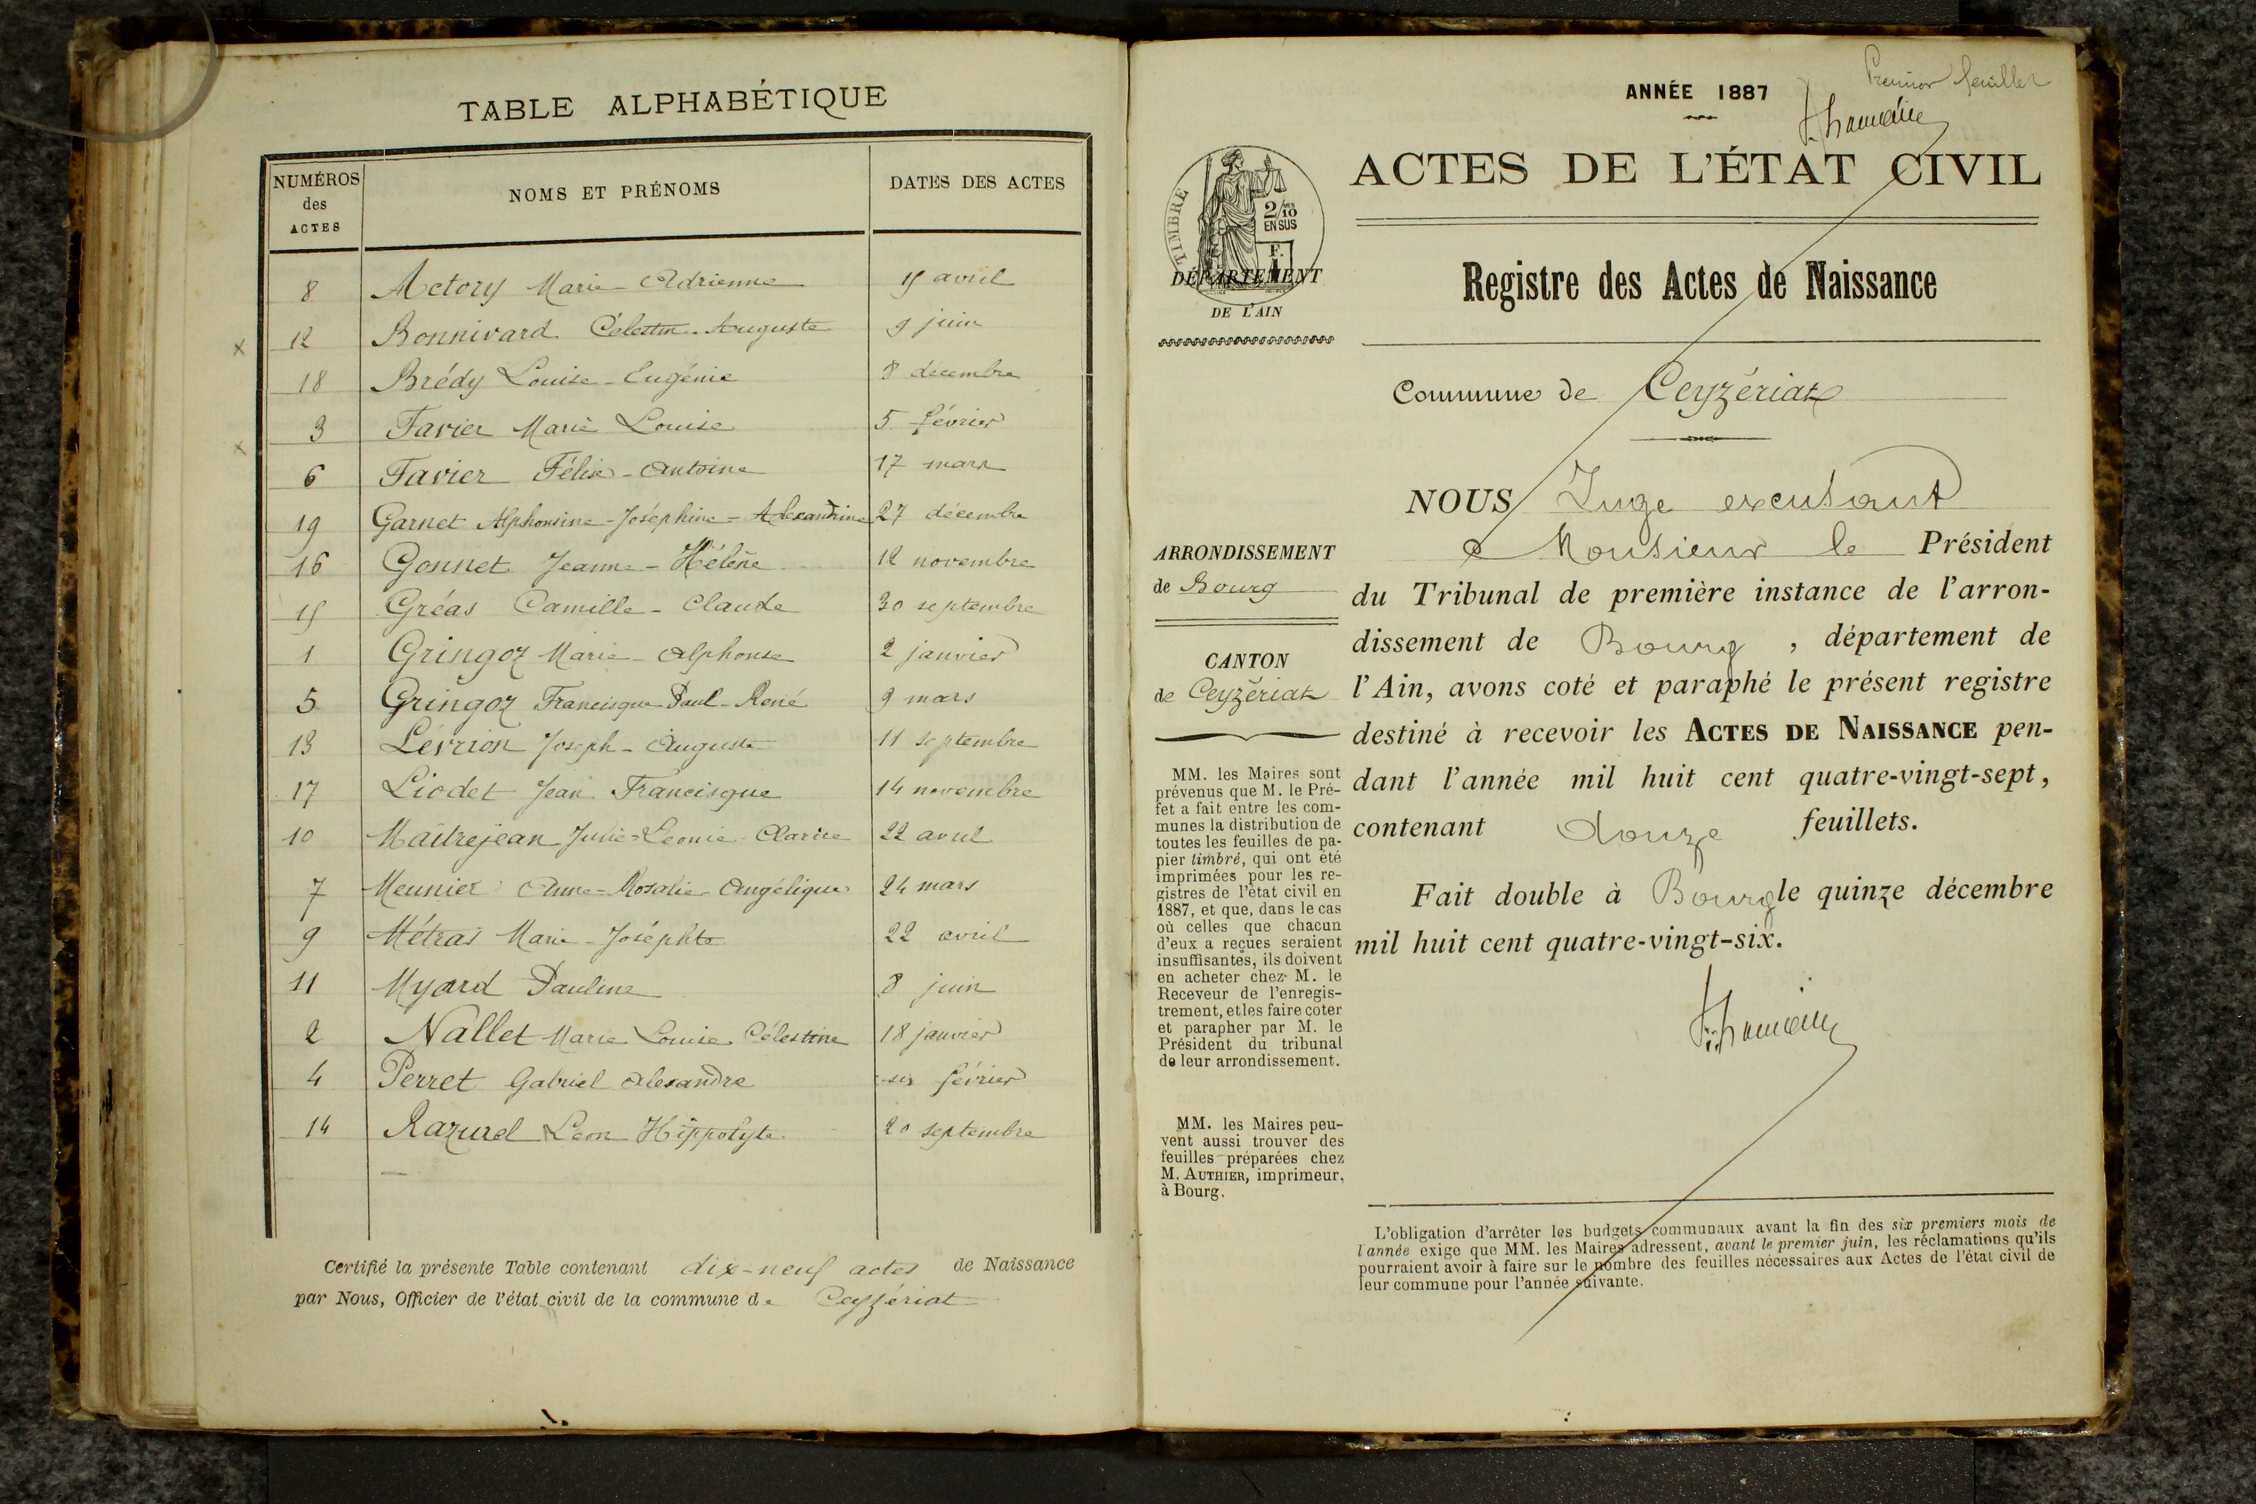 TABLE ALPHABÉTIQUE
NUMÉROS des ACTES NOMS ET PRÉNOMS DATES DES ACTES
8 Actory Marie-Adrienne 15 avril
x 12 Bonnivard Célestin-Auguste 9 juin
18 Brédy Louise-Eugénie 8 décembre
3 Favier Marie Louise 5 février
x 6 Favier Félix-Antoine 17 mars
19 Garnet Alphonsine-Joséphine-Alexandrine 27 décembre
16 Gonnet Jeanne-Hélène 12 novembre
15 Gréas Camille-Claude 30 septembre
1 Gringoz Marie-Alphonse 2 janvier
5 Gringoz Francisque Paul-René 9 mars
13 Lévrion Joseph-Auguste 11 septembre
17 Liodet Jean Francisque 14 novembre
10 Maitrejean Julie-Léonie-Clarice 22 avril
7 Meunier Anne-Rosalie-Angélique 24 mars
9 Métras Marie-Joséphte 22 avril
11 Myard Pauline 8 juin
2 Nallet Marie Louise Célestine 18 janvier
4 Perret Gabriel Alexandre six février
14 Razurel Léon Hippolyte 20 septembre
Certifié la présente Table contenant dix-neuf actes de Naissance
par Nous, Officier de l'état civil de la commune de Ceyzériat
Premier feuillet
ANNÉE 1887
ACTES DE L'ÉTAT CIVIL
TIMBRE
2/10
EN SUS
F.
1
DÉPARTEMENT
DE L'AIN
Registre des Actes de Naissance
Commune de Ceyzériat
NOUS Juge excusant
Monsieur le Président
du Tribunal de première instance de l'arron-
dissement de Bourg, département de
l'Ain, avons coté et paraphé le présent registre
destiné à recevoir les ACTES DE NAISSANCE pen-
dant l'année mil huit cent quatre-vingt-sept,
contenant douze feuillets.
Fait double à Bourg le quinze décembre
mil huit cent quatre-vingt-six.
ARRONDISSEMENT
de Bourg
CANTON
de Ceyzériat
MM. les Maires sont
prévenus que M. le Pré-
fet a fait entre les com-
munes la distribution de
toutes les feuilles de pa-
pier timbré, qui ont été
imprimées pour les re-
gistres de l'état civil en
1887, et que, dans le cas
où celles que chacun
d'eux a reçues seraient
insuffisantes, ils doivent
en acheter chez M. le
Receveur de l'enregis-
trement, et les faire coter
et parapher par M. le
Président du tribunal
de leur arrondissement.
MM. les Maires peu-
vent aussi trouver des
feuilles préparées chez
M. AUTHIER, imprimeur,
à Bourg.
L'obligation d'arrêter les budgets communaux avant la fin des six premiers mois de
l'année exige que MM. les Maires adressent, avant le premier juin, les réclamations qu'ils
pourraient avoir à faire sur le nombre des feuilles nécessaires aux Actes de l'état civil de
leur commune pour l'année suivante.